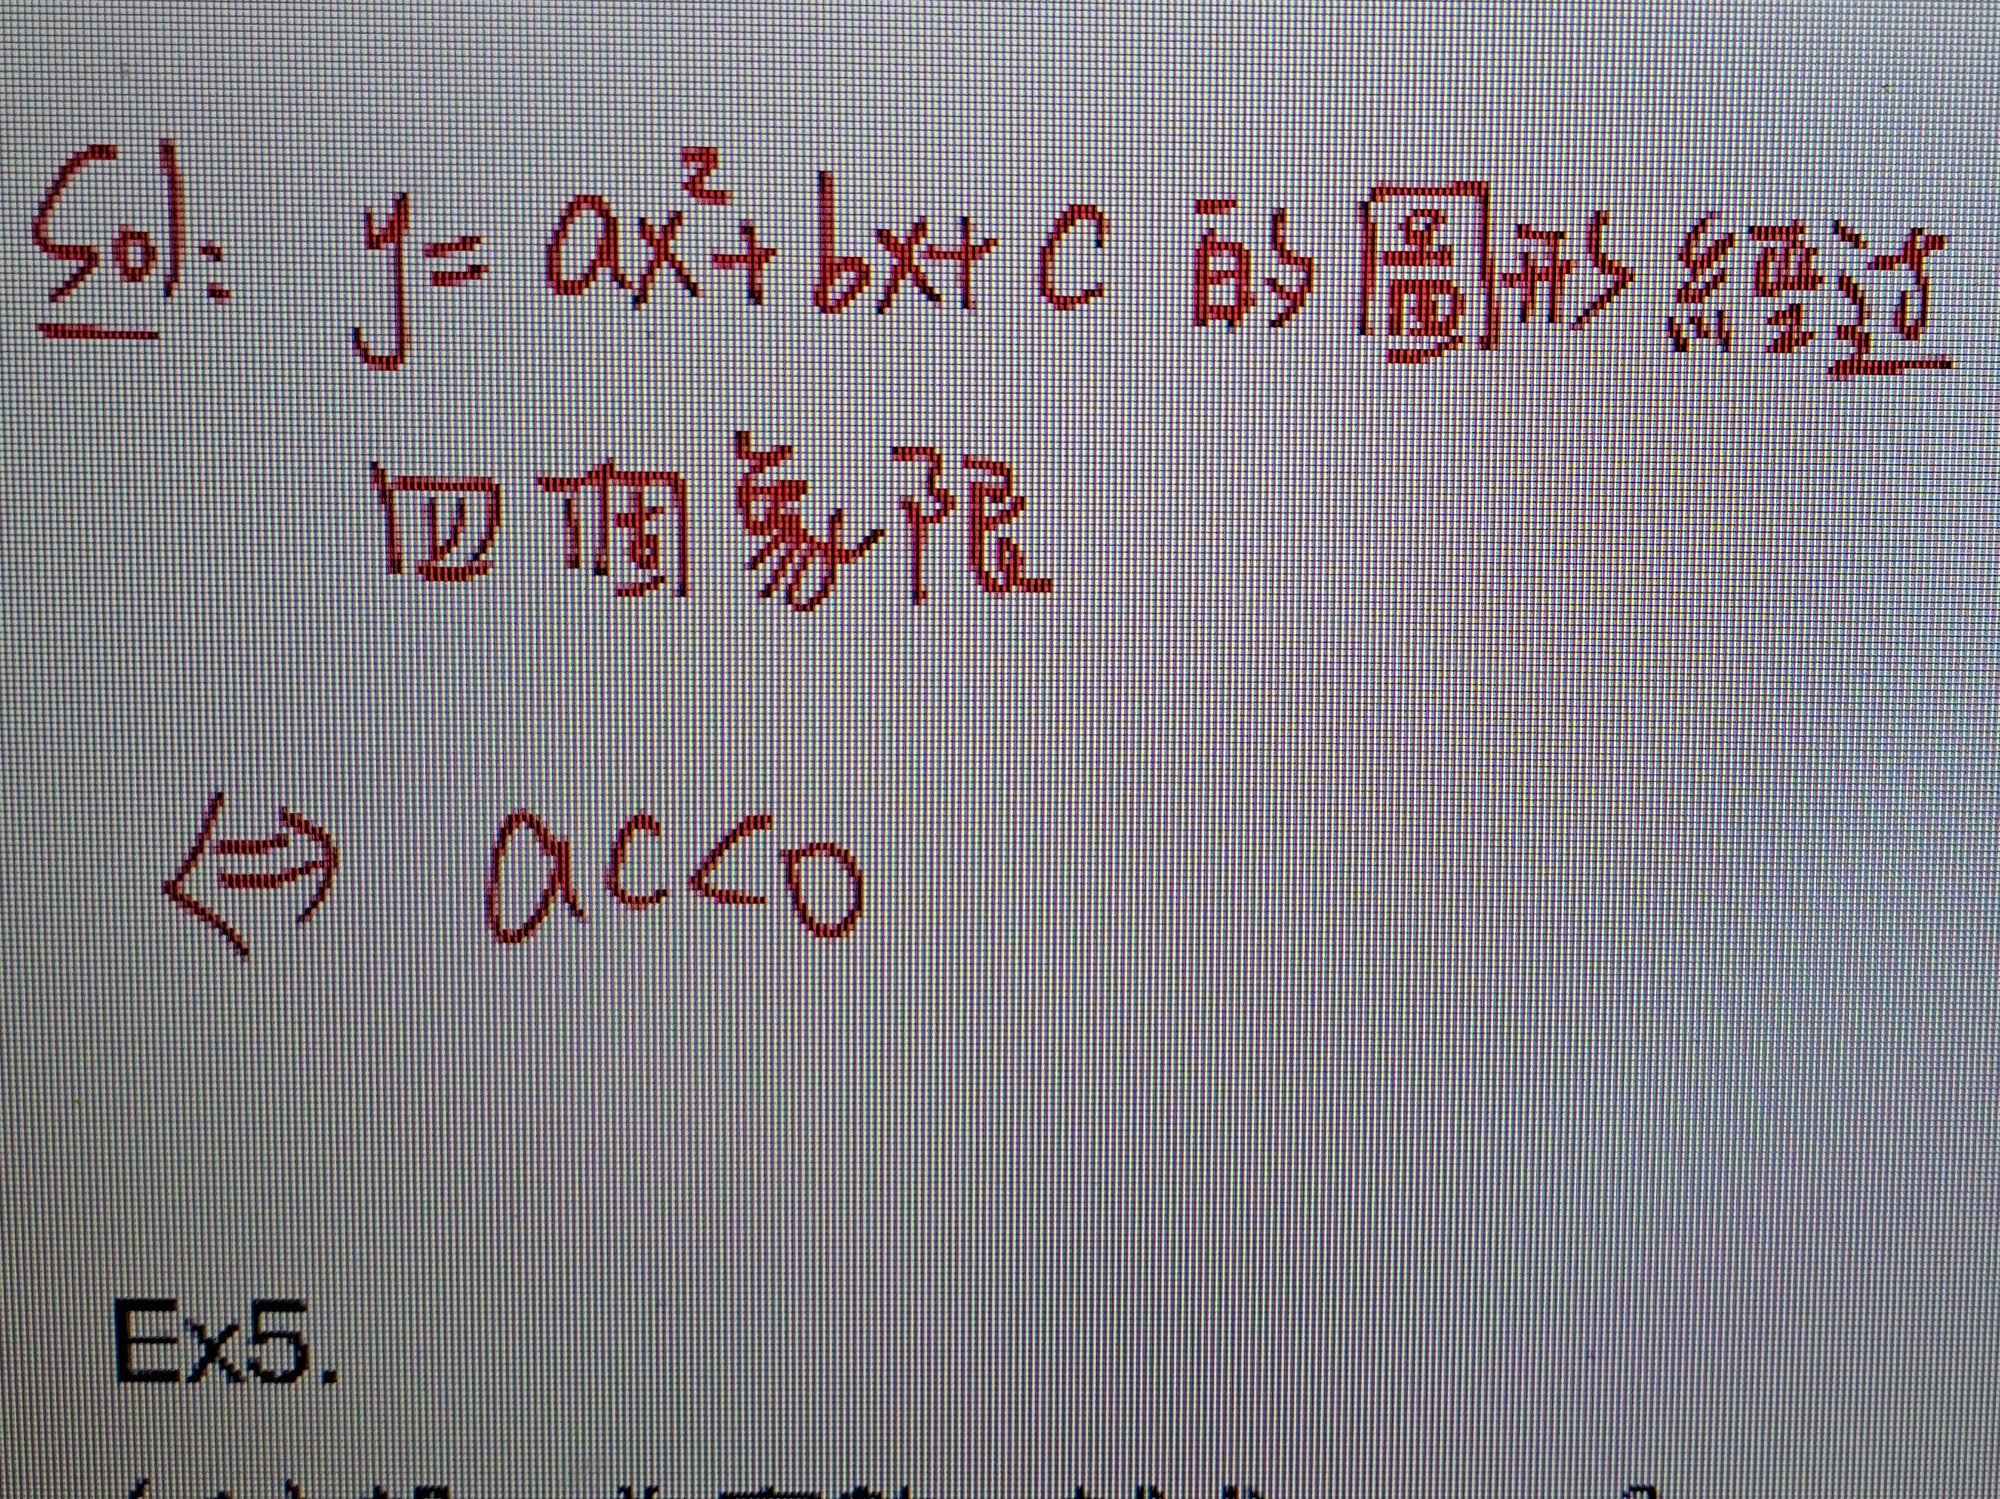 Sol: y = ax²+bx+c 的圖形經過
四個象限
⇔ ac<0
Ex5.